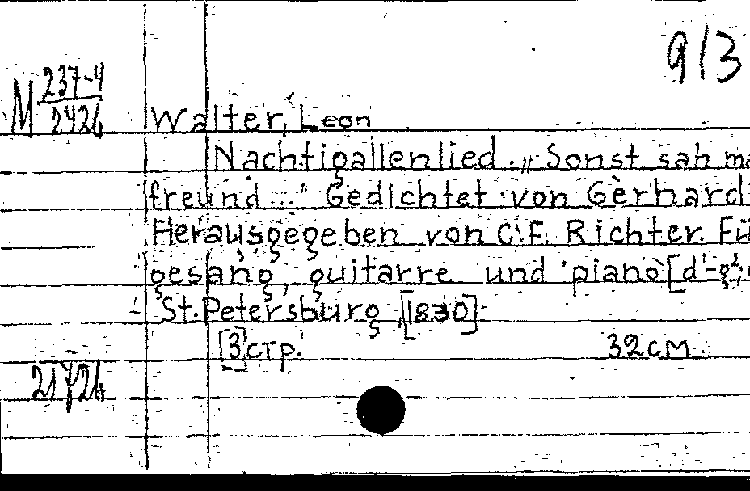 9/3
М 237-4
2426
Walter, Leon
Nachtigallenlied. „Sonst sah ma
freund..." Gedichtet von Gerhard
Herausgegeben von C.F. Richter. Fü
gesang, guitarre und piano [d¹-g²]
St. Petersburg, [1830].
[3] стр. 32 см.